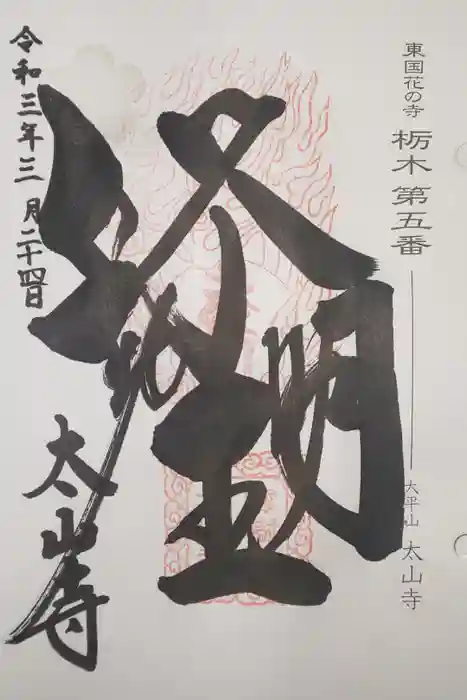 東国花の寺 栃木第五番 大平山 太山寺
明王
令和三年三月二十四日
太山寺